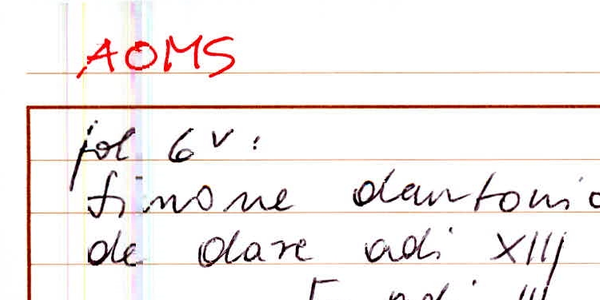 AOMS
fol 6v:
Simone dantonio
de dare adi XIIJ
adi